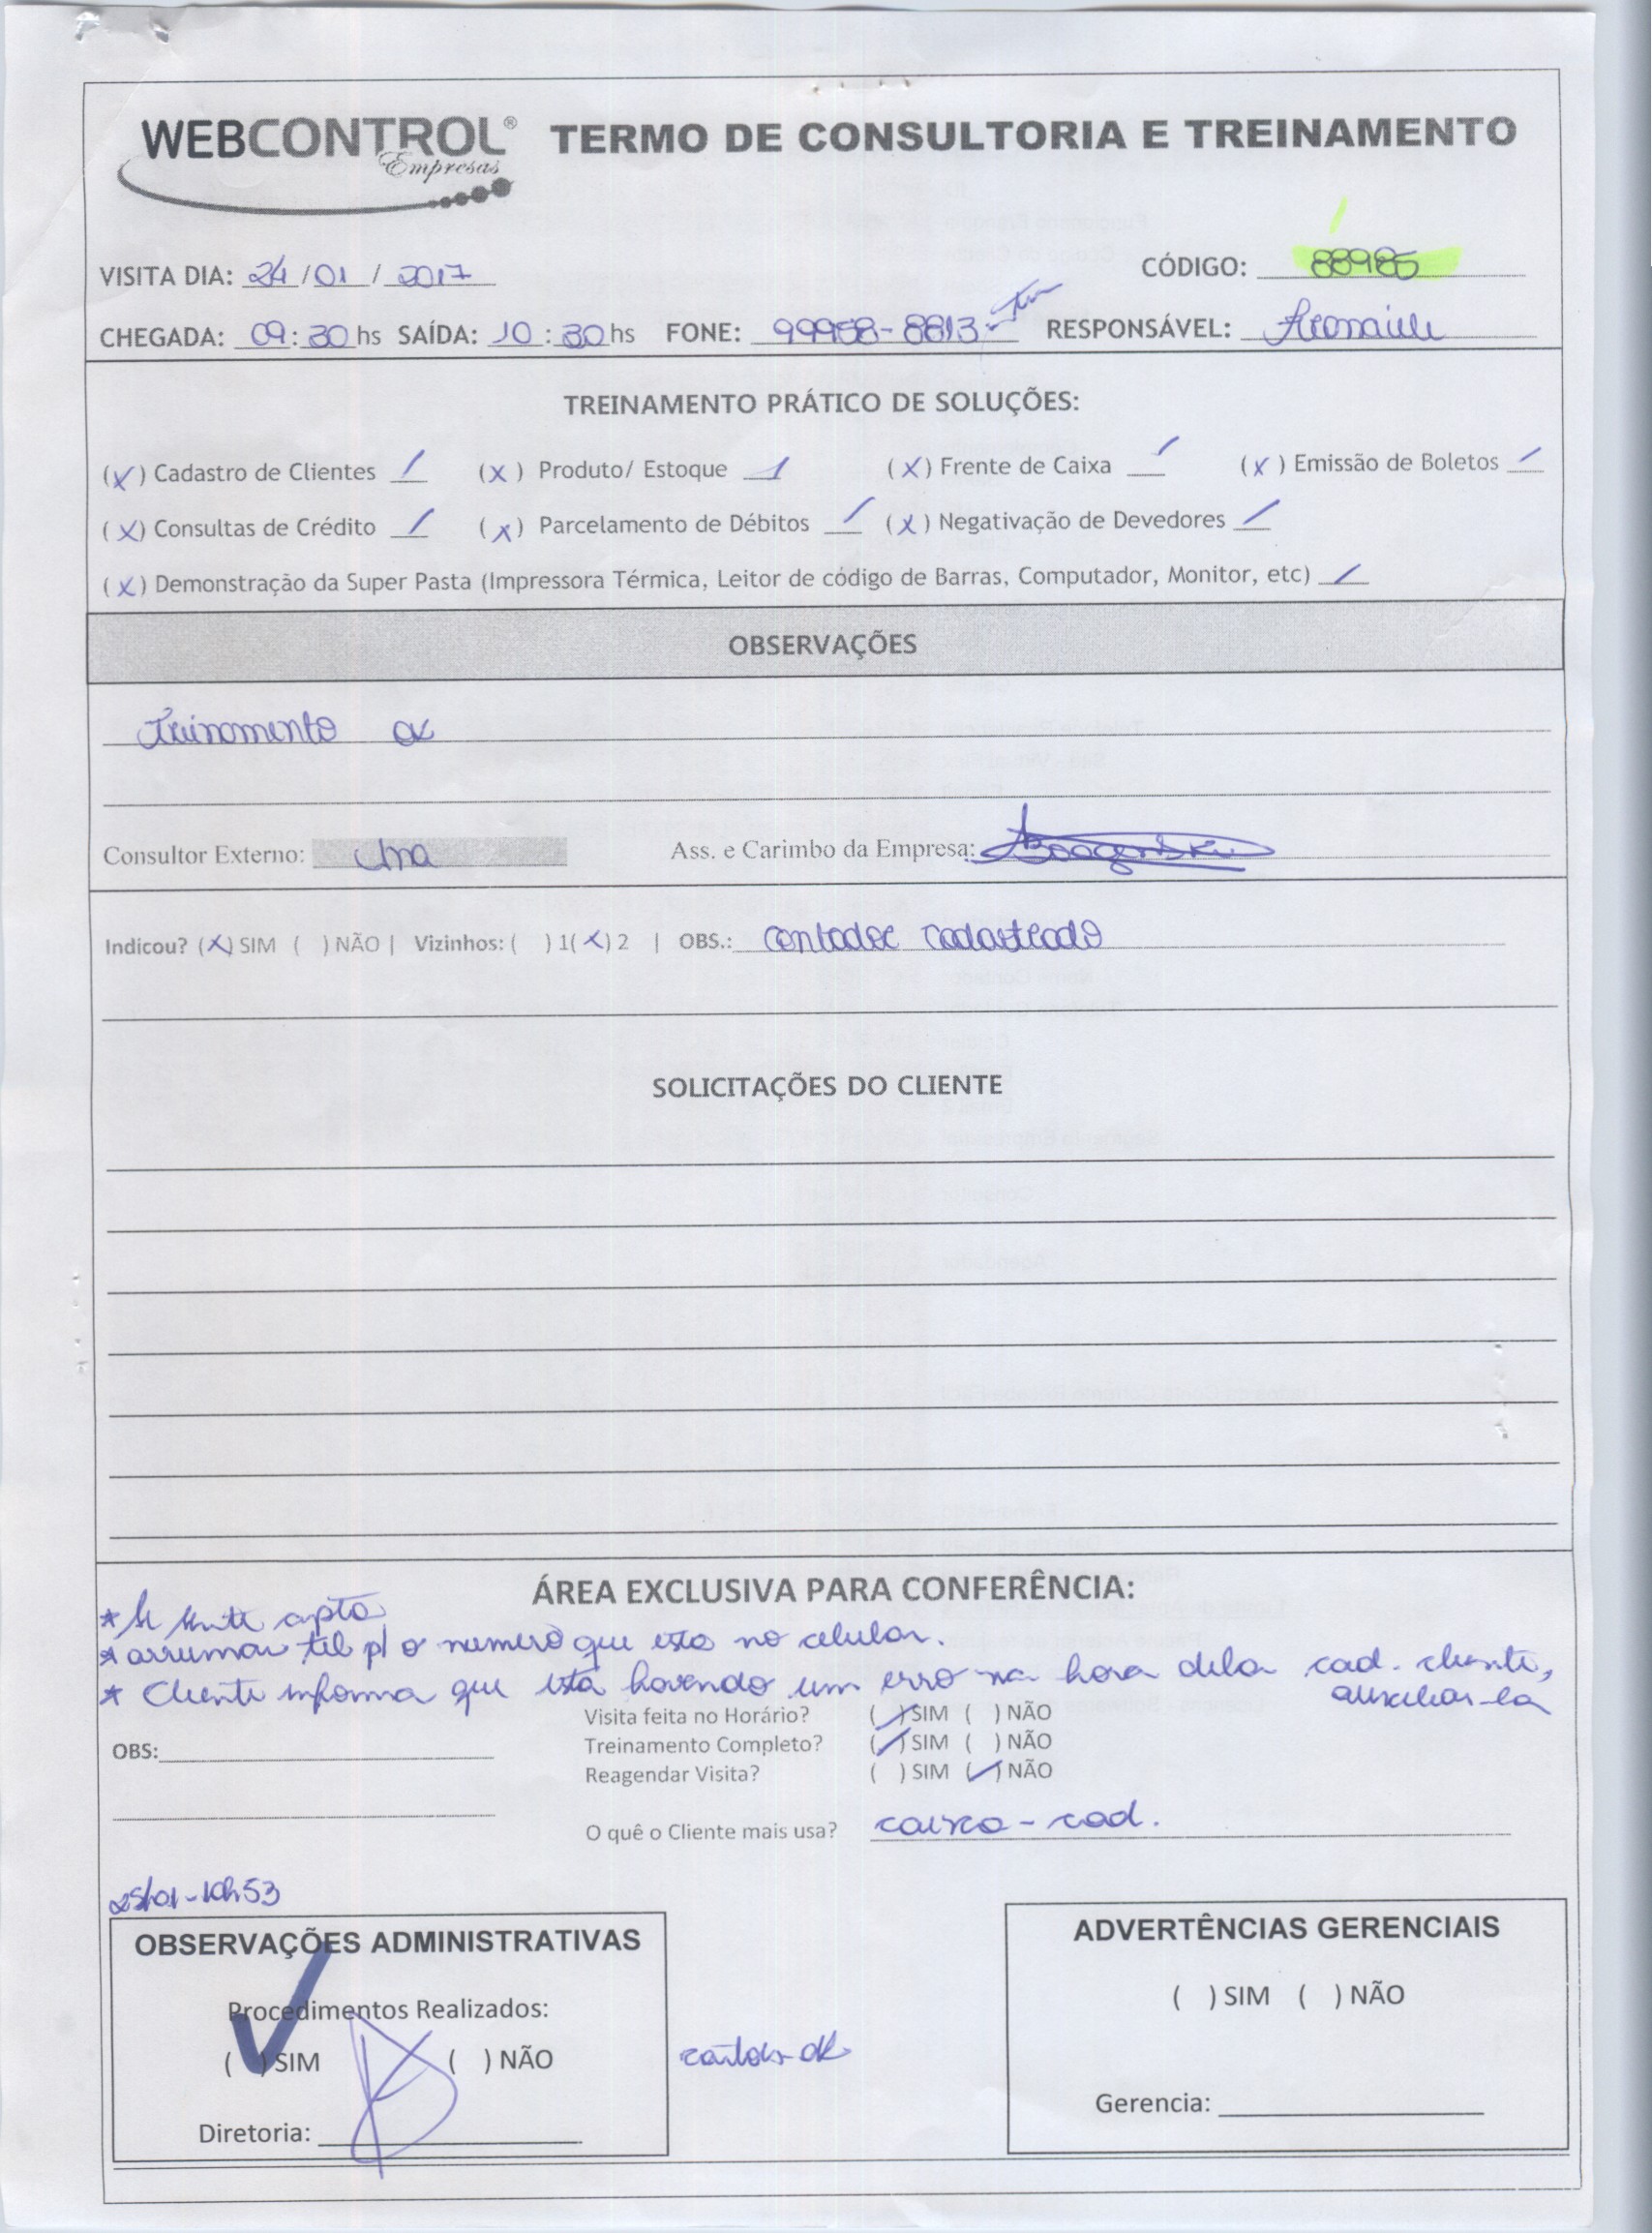 WEBCONTROL® Empresas
TERMO DE CONSULTORIA E TREINAMENTO
VISITA DIA: 24 / 01 / 2017 CÓDIGO: 88985
CHEGADA: 09:30 hs SAÍDA: 10:30 hs FONE: 99958-8813 RESPONSÁVEL:
TREINAMENTO PRÁTICO DE SOLUÇÕES:
(X) Cadastro de Clientes / (X) Produto/ Estoque / (X) Frente de Caixa / (X) Emissão de Boletos /
(X) Consultas de Crédito / (X) Parcelamento de Débitos / (X) Negativação de Devedores /
(X) Demonstração da Super Pasta (Impressora Térmica, Leitor de código de Barras, Computador, Monitor, etc) /
OBSERVAÇÕES
Treinamento ok
Consultor Externo: Ana Ass. e Carimbo da Empresa:
Indicou? (X) SIM ( ) NÃO | Vizinhos: ( ) 1 (X) 2 | OBS.: contador cadastrado
SOLICITAÇÕES DO CLIENTE
ÁREA EXCLUSIVA PARA CONFERÊNCIA:
* Se sente apta
* arrumar tel p/ o numero que esta no celular.
* Cliente informa que está havendo um erro na hora dela cad. cliente,
auxiliar-la
Visita feita no Horário? (/) SIM ( ) NÃO
Treinamento Completo? (/) SIM ( ) NÃO
OBS:
Reagendar Visita? ( ) SIM (/) NÃO
O quê o Cliente mais usa? caixa - cad.
25/01 - 10h53
OBSERVAÇÕES ADMINISTRATIVAS
Procedimentos Realizados:
(✓) SIM ( ) NÃO
Diretoria:
ok
ADVERTÊNCIAS GERENCIAIS
( ) SIM ( ) NÃO
Gerencia: